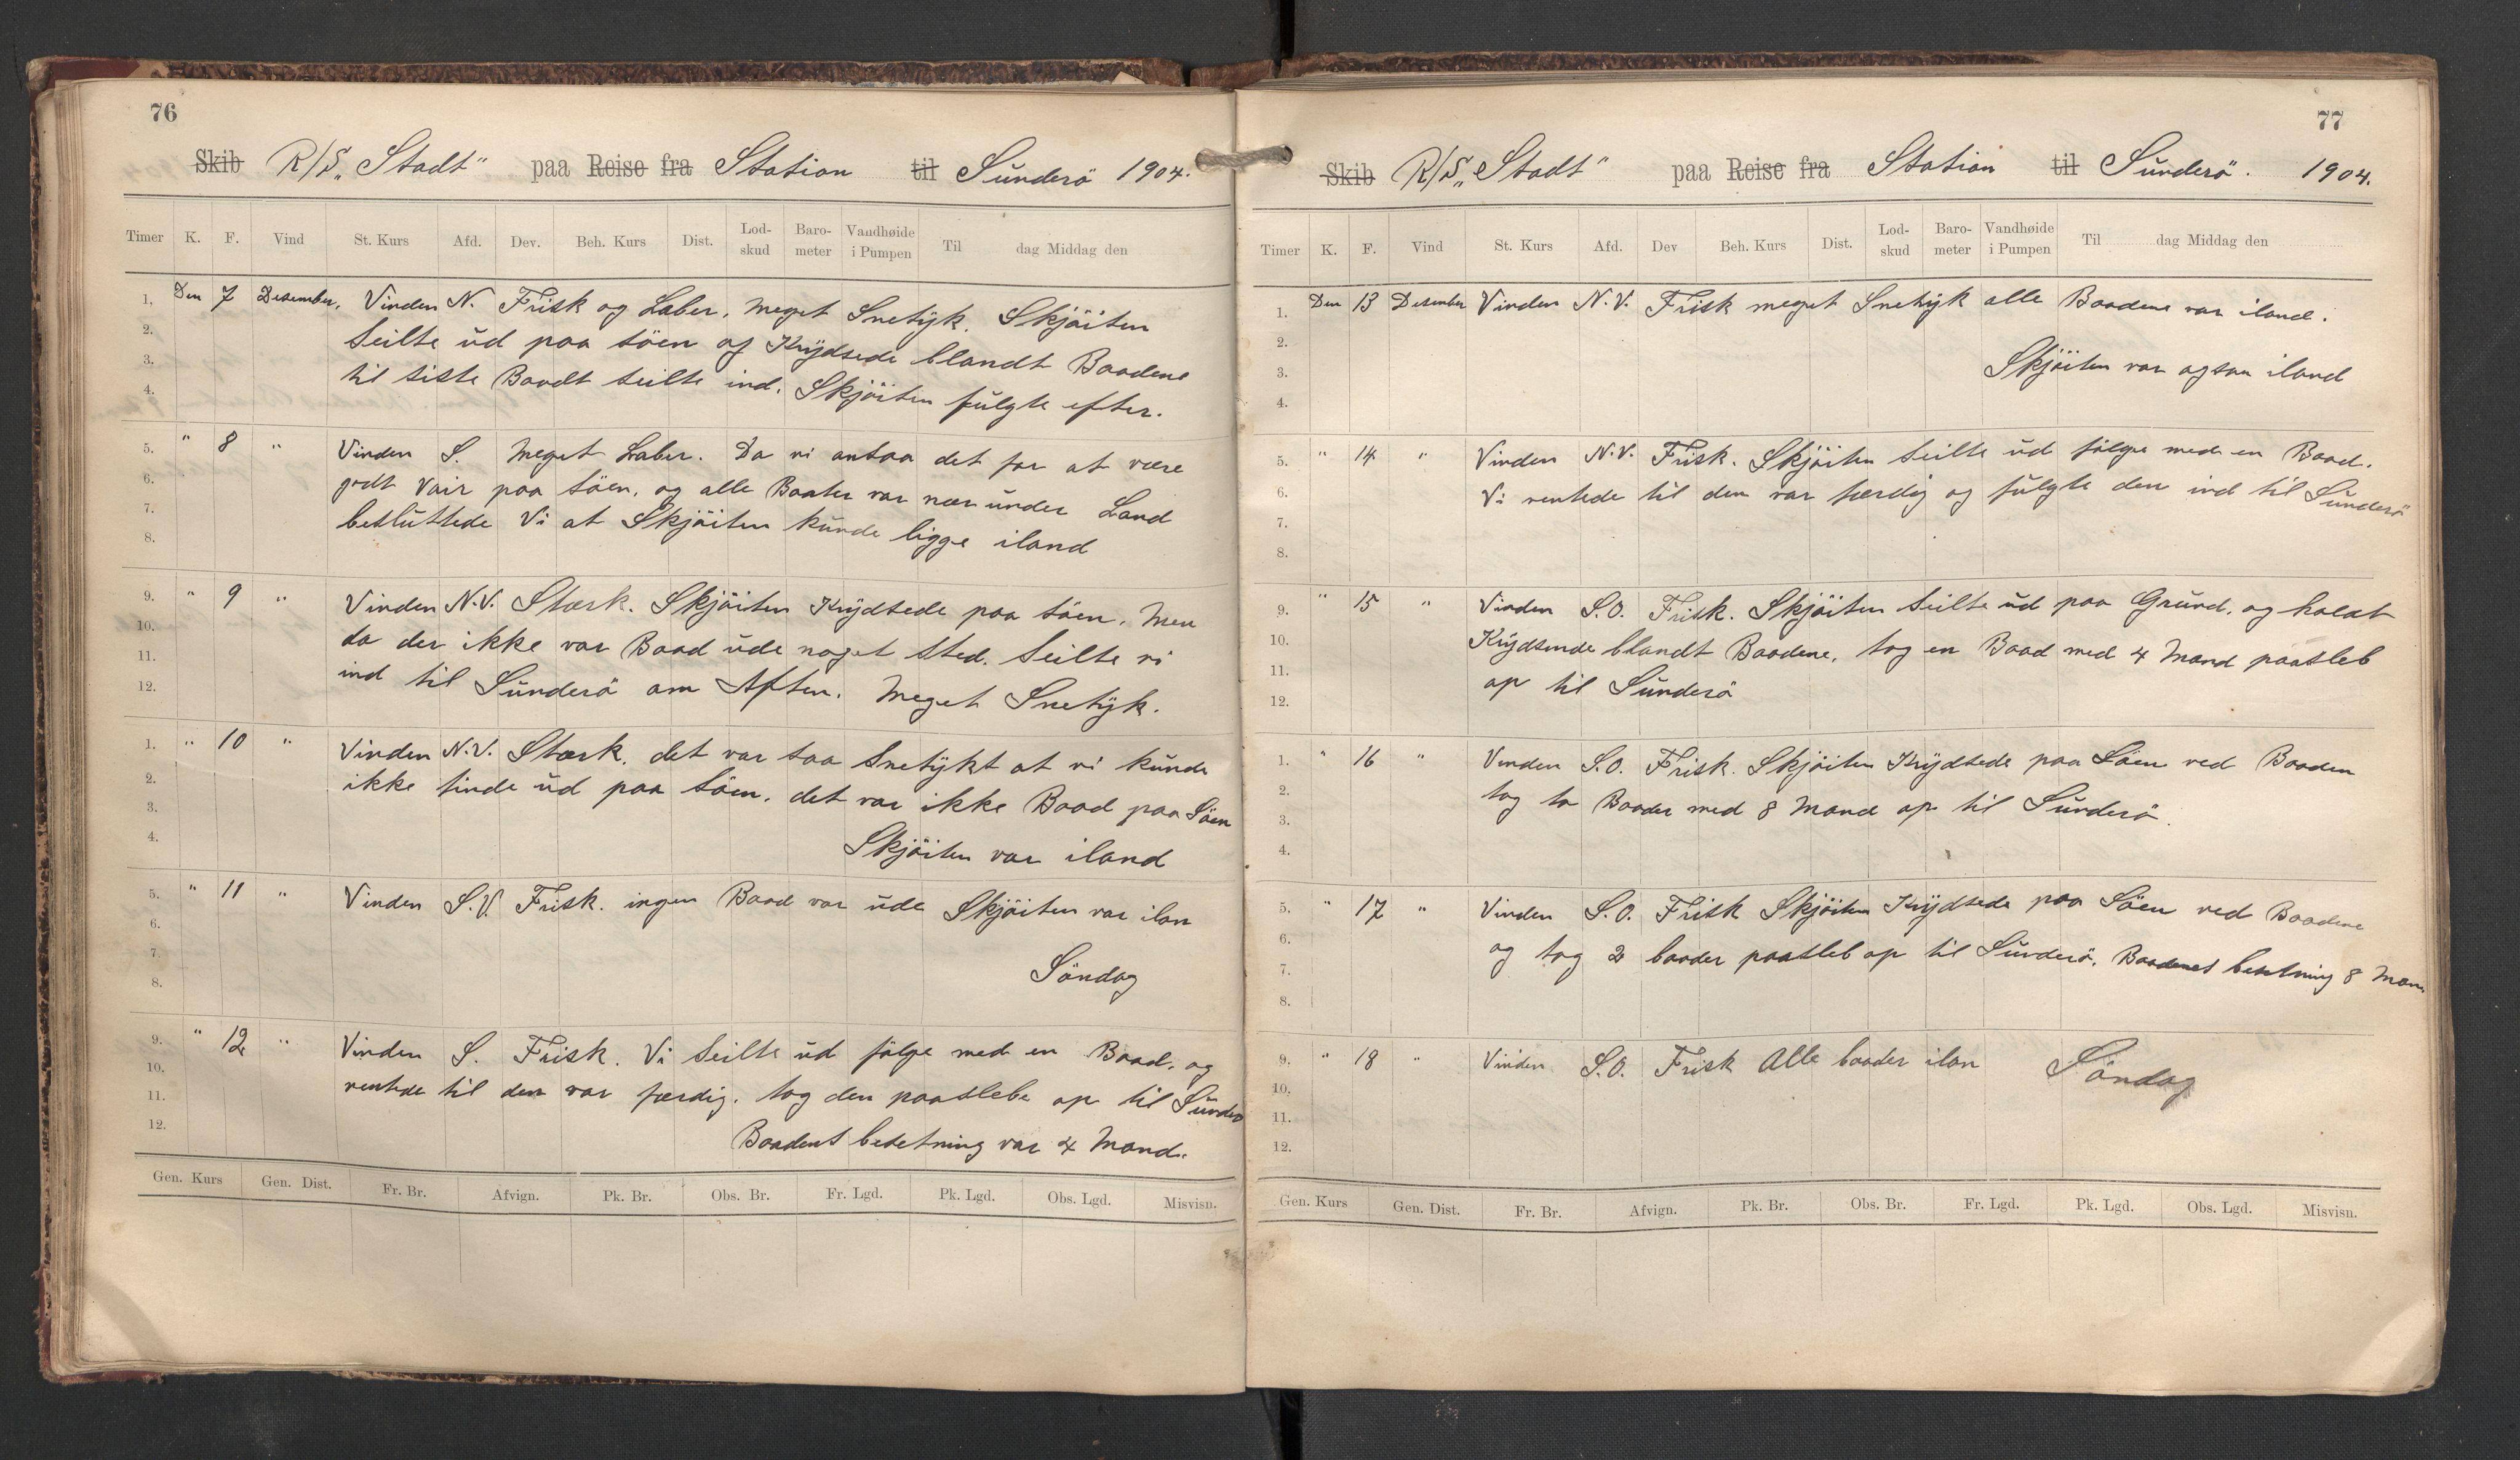 76
Skib R/S „Stadt" paa Reise fra Station til Sunderö 1904.
Timer K. F. Vind St. Kurs Afd. Dev. Beh. Kurs Dist. Lod-skud Baro-meter Vandhøide i Pumpen Til dag Middag den
1, Den 7 Desember, Vinden N. Frisk og Laber, meget Snetÿk. Skjöiten
2. Seilte ud paa söen og Krÿdsede blandt Baadene
3. til siste Baadt seilte ind. Skjöiten fulgte efter.
4.
5. " 8 " Vinden S. Meget Laber. Da vi antaa det for at være
6. godt Vair paa söen, og alle Baater var nær under Land
7. besluttede Vi at Skjöiten kunde ligge iland
8.
9. " 9 " Vinden N.V. Stærk. Skjöiten Krÿdsede paa söen. Men
10. da der ikke var Baad ude noget sted. Seilte vi
11. ind til Sunderö om Aften. Meget Snetÿk.
12.
1. " 10 " Vinden N.V. Stærk. det var saa Snetÿkt at vi kunde
2. ikke finde ud paa söen. det var ikke Baad paa Söen
3. Skjöiten var iland
4.
5. " 11 " Vinden S.V. Frisk. ingen Baad var ude Skjöiten var ilan
6.
7. Söndag
8.
9. " 12 " Vinden S. Frisk. Vi Seilte ud fölge med en Baad. og
10. ventede til den var færdig. tog den paaslebe op til Sunder
11. Baadens besetning var 4 Mand.
12.
Gen. Kurs Gen. Dist. Fr. Br. Afvign. Pk. Br. Obs. Br. Fr. Lgd. Pk. Lgd. Obs. Lgd. Misvisn.
77
Skib R/S „Stadt" paa Reise fra Station til Sunderö. 1904.
Timer K. F. Vind St. Kurs Afd. Dev Beh. Kurs Dist. Lod-skud Baro-meter Vandhøide i Pumpen Til dag Middag den
1. Den 13 Desember Vinden N.V. Frisk meget Snetÿk alle Baadene var iland.
2.
3. Skjöiten var ogsaa iland
4.
5. " 14 " Vinden N.V. Frisk. Skjöiten Seilte ud fölge med en Baad.
6. Vi ventede til den var færdig og fulgte den ind til Sunderö
7.
8.
9. " 15 " Vinden S.O. Frisk. Skjöiten Seilte ud paa Grund. og holdt
10. Krÿdsende blandt Baadene. tog en Baad med 4 Mand paasleb
11. op til Sunderö
12.
1. " 16 " Vinden S.O. Frisk. Skjöiten Krÿdsede paa Söen ved Baaden
2. tog to Baader med 8 Mand op til Sunderö.
3.
4.
5. " 17 " Vinden S.O. Frisk Skjöiten Krÿdsede paa Söen ved Baadene
6. og tog 2 baader paasleb op til Sunderö. Baadenes besetning 8 Man
7.
8.
9. " 18 " Vinden S.O. Frisk Alle baader ilan Söndag
10.
11.
12.
Gen. Kurs Gen. Dist. Fr. Br. Afvign. Pk. Br. Obs. Br. Fr. Lgd. Pk. Lgd. Obs. Lgd. Misvisn.